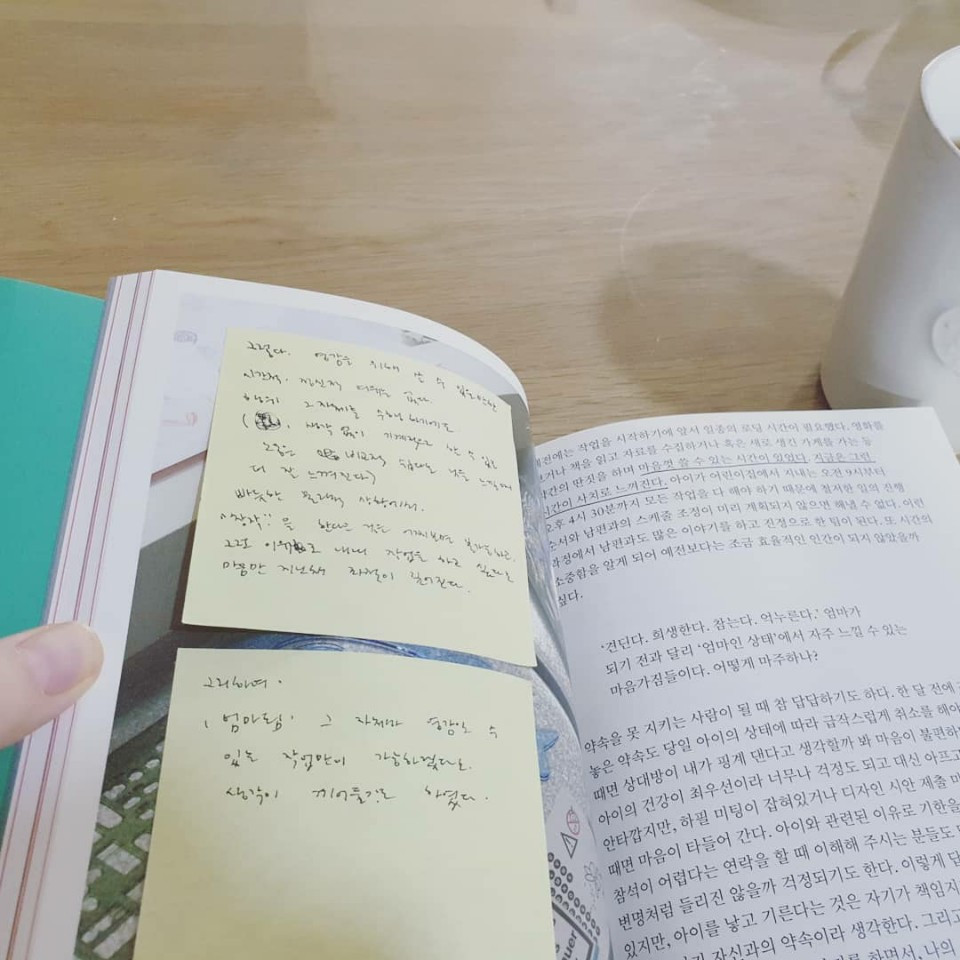 그렇다. 영감을 위해 쓸 수 있을만한
시간적, 정신적 여유는 없다.
행위 그 자체를 수행하기에도
( 생각 없이 기계적으로 할 수 있는
더 잘 느껴진다)
빠듯한 물리적 상황에서.
"창작"을 한다는 것은 어찌보면
그로 이외로 내내 작업을 하고 싶다는
마음만 지닌채 좌절이 깊어진다.
그리하여.
'엄마됨' 그 자체가 영감일 수
있는 작업만이 가능하겠다는
생각이 끼어들기도 하였다.
예전에는 작업을 시작하기에 앞서 일종의 로딩 시간이 필요했다. 영화를
보거나 책을 읽고 자료를 수집하거나 혹은 새로 생긴 가게를 가는 등
약간의 딴짓을 하며 마음껏 쓸 수 있는 시간이 있었다. 지금은 그런
시간이 사치로 느껴진다. 아이가 어린이집에서 지내는 오전 9시부터
오후 4시 30분까지 모든 작업을 다 해야 하기 때문에 철저한 일의 진행
순서와 남편과의 스케줄 조정이 미리 계획되지 않으면 해낼 수 없다. 이런
과정에서 남편과도 많은 이야기를 하고 진정으로 한 팀이 된다. 또 시간의
소중함을 알게 되어 예전보다는 조금 효율적인 인간이 되지 않았을까
싶다.
'견딘다. 희생한다. 참는다. 억누른다.' 엄마가
되기 전과 달리 '엄마인 상태'에서 자주 느낄 수 있는
마음가짐들이다. 어떻게 마주하나?
약속을 못 지키는 사람이 될 때 참 답답하기도 하다. 한 달 전에
놓은 약속도 당일 아이의 상태에 따라 급작스럽게 취소를 해야
때면 상대방이 내가 핑계 댄다고 생각할까 봐 마음이 불편하
아이의 건강이 최우선이라 너무나 걱정도 되고 대신 아프고
안타깝지만, 하필 미팅이 잡혀있거나 디자인 시안 제출 마
때면 마음이 타들어 간다. 아이와 관련된 이유로 기한을
참석이 어렵다는 연락을 할 때 이해해 주시는 분들도
변명처럼 들리진 않을까 걱정되기도 한다. 이렇게
있지만, 아이를 낳고 기른다는 것은 자기가 책임지
자신과의 약속이라 생각한다. 그리고
하면서, 나의